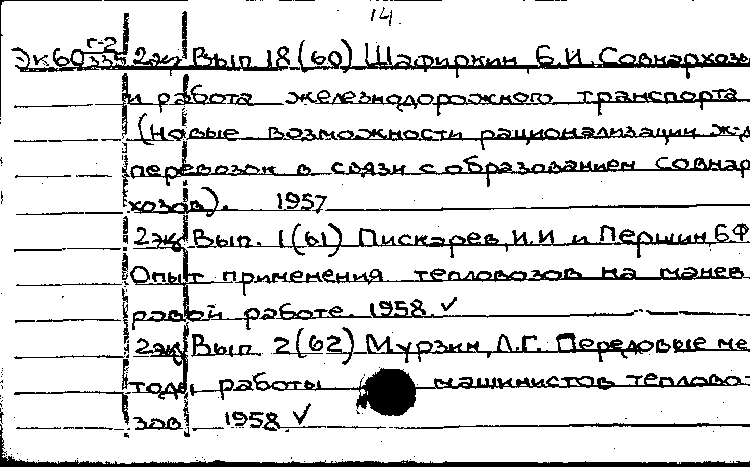 14.
Эк60 г-2/335 2эк Вып 18(60) Шафиркин, Б.И. Совнархозы
и работа железнодорожного транспорта
(Новые возможности рационализации ж-д
перевозок в связи с образованием Совнар
хозов). 1957
2эк Вып. 1(61) Пискарев, И.И и Першин Б.Ф
Опыт применения тепловозов на манев
ровой работе. 1958 ✓
2эк Вып 2(62) Мурзин, Л.Г. Передовые ме
тоды работы машинистов теплово
зов 1958 ✓